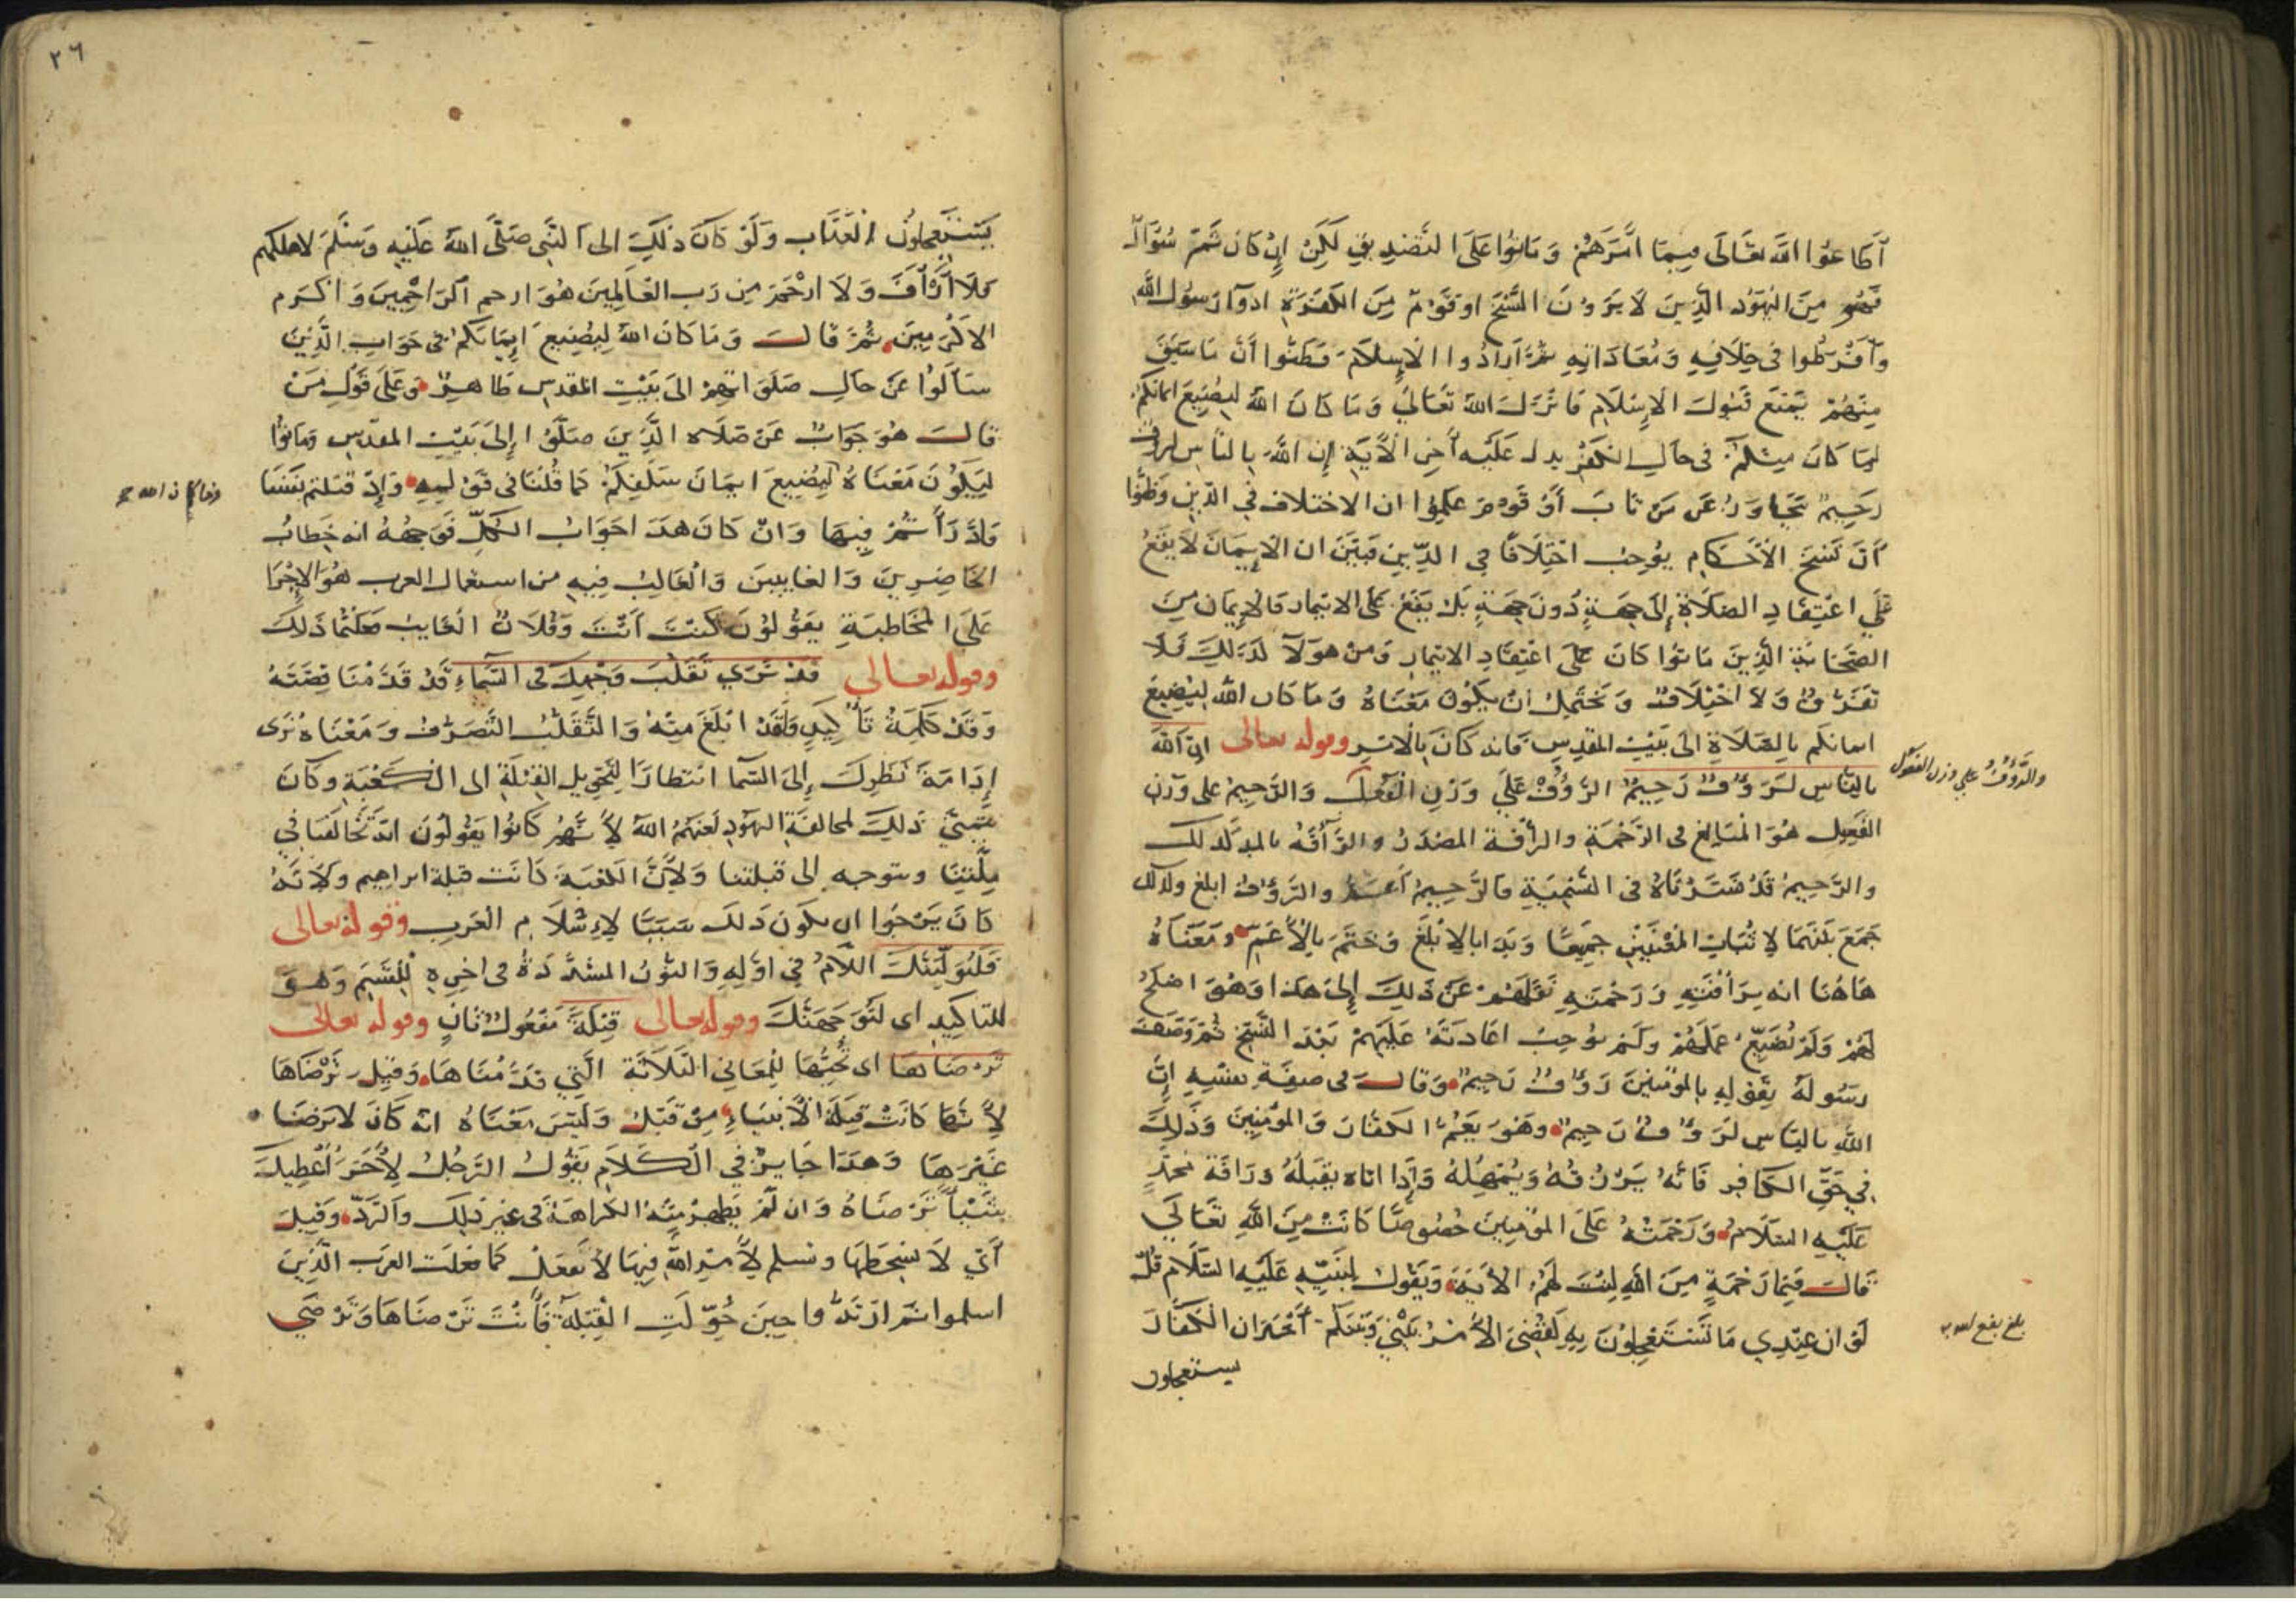 أطاعوا الله تعالى فيما أمرهم وماتوا على التصديق لكن إن كان ثم سؤال
فهو من اليهود الذين لا يرون النسخ او قوم من الكفرة اذوا رسول الله
وأفرطوا في خلافه ومعاداته ثم أرادوا الإسلام فظنوا أن ما سبق
منهم يمنع قبول الإسلام فأنزل الله تعالى وما كان الله ليضيع ايمانكم
لما كان منكم في حال الكفر يدل عليه آخر الآية إن الله بالناس لرؤف
رحيم يتجاوز عن من تاب أو قوم علموا ان الاختلاف في الدين وظنوا
أن نسخ الأحكام يوجب اختلافا في الدين فبين ان الإيمان لا يقع
على اعتقاد الصلاة إلى جهة دون جهة بل يقع على الايتمار فالإيمان من
الصحابة الذين ماتوا كان على اعتقاد الايتمار ومن هولآ لذلك فلا
تفرق ولا اختلاف ويحتمل ان يكون معناه وما كان الله ليضيع
ايمانكم بالصلاة الى بيت المقدس فانه كان بالامر وقوله تعالى ان الله
بالناس لرؤف رحيم الرؤف على وزن الفعل والرحيم على وزن
والرؤف على وزن الفعول
الفعيل هو المبالغ في الرحمة والرأفة المصدر والرآفة بالمد كذلك
والرحيم قد فسرناه في التسمية فالرحيم أعم والرؤف ابلغ ولذلك
جمع بينهما لإثبات المعنيين جميعا وبدا بالابلغ وختم بالأعم ومعناه
هاهنا انه برأفته ورحمته نقلهم عن ذلك إلى هذا وهو اصلح
لهم ولم يضيع عملهم ولم يوجب اعادته عليهم بعد النسخ ثم وصف
رسوله بقوله بالمؤمنين رؤف رحيم وقال في صفة نفسه إن
الله بالناس لرؤف رحيم وهو يعم الكفار والمؤمنين وذلك
في حق الكافر فانه يرزقه ويمهله وإذا اتاه يقبله ورافة محمد
عليه السلام ورحمته على المؤمنين خصوصا كانت من الله تعالى
قال فبما رحمة من الله لنت لهم الأية ويقول لنبيه عليه السلام قل
لو ان عندي ما تستعجلون به لقضي الأمر بيني وبينكم أخبر ان الكفار
يستعجلون
٢٦
يستعجلون العذاب ولو كان ذلك الى النبي صلى الله عليه وسلم لاهلكهم
فلا أرأف ولا ارحم من رب العالمين هو ارحم الراحمين واكرم
الاكرمين ثم قال وما كان الله ليضيع ايمانكم في جواب الذين
سألوا عن حال صلواتهم الى بيت المقدس ظاهر وعلى قول من
قال هو جواب عن صلاه الذين صلوا إلى بيت المقدس وماتوا
ليكون معناه ليضيع ايمان سلفكم كما قلنا في قوله وإذ قتلتم نفسا
فادرأتم فيها وان كان هذا جواب الكل فوجهه انه خطاب
الحاضرين والغايبين والغالب فيه من استعمال العرب هو الإجرا
على المخاطبة يقولون كنت أنت وفلان الغايب فعلتما ذلك
وقوله تعالى قد نرى تقلب وجهك في السماء قد قدمنا قصته
وقد كلمة تأكيد ولقد ابلغ منه والتقلب التصرف ومعناه نرى
إدامة نظرك إلى السما انتظارا لتحويل القبلة الى الكعبة وكان
يتمنى ذلك لمخالفة اليهود لعنهم الله لأنهم كانوا يقولون انه يخالفنا في
ملتنا ويتوجه الى قبلتنا ولأن الكعبة كانت قبلة ابراهيم ولأنه
كان يرجوا ان يكون ذلك سببا لإسلام العرب وقوله تعالى
فلنولينك اللام في اوله والنون المشددة في اخره للقسم وهو
للتاكيد اى لنوجهنك وقوله تعالى قبلة مفعول ثان وقوله تعالى
ترضاها اى تحبها للمعاني الثلاثة التي قدمناها وقيل ترضاها
لأنها كانت قبلة الأنبياء من قبلك وليس معناه انه كان لا يرضا
غيرها وهذا جايز في الكلام يقول الرجل لأخر أعطيك
شيئا ترضاه وان لم يظهر منه الكراهة في غير ذلك والرد وقيل
أي لا تسخطها وتسلم لأمر الله فيها لا تفعل كما فعلت العرب الذين
اسلموا ثم ارتدوا حين حولت القبلة فأنت ترضاها وترضى